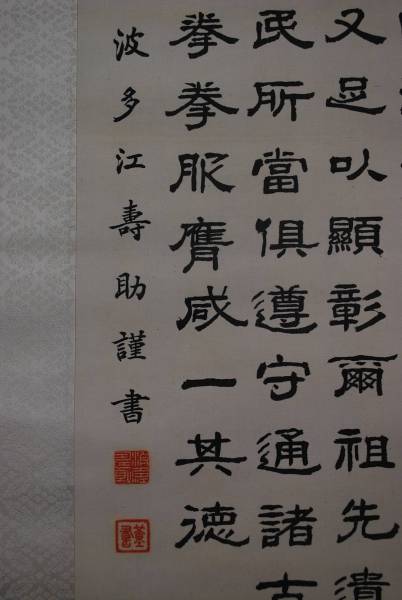 又足以顯彰爾祖先遺
民所當俱遵守通諸古
拳拳服膺咸一其德
波多江壽助謹書